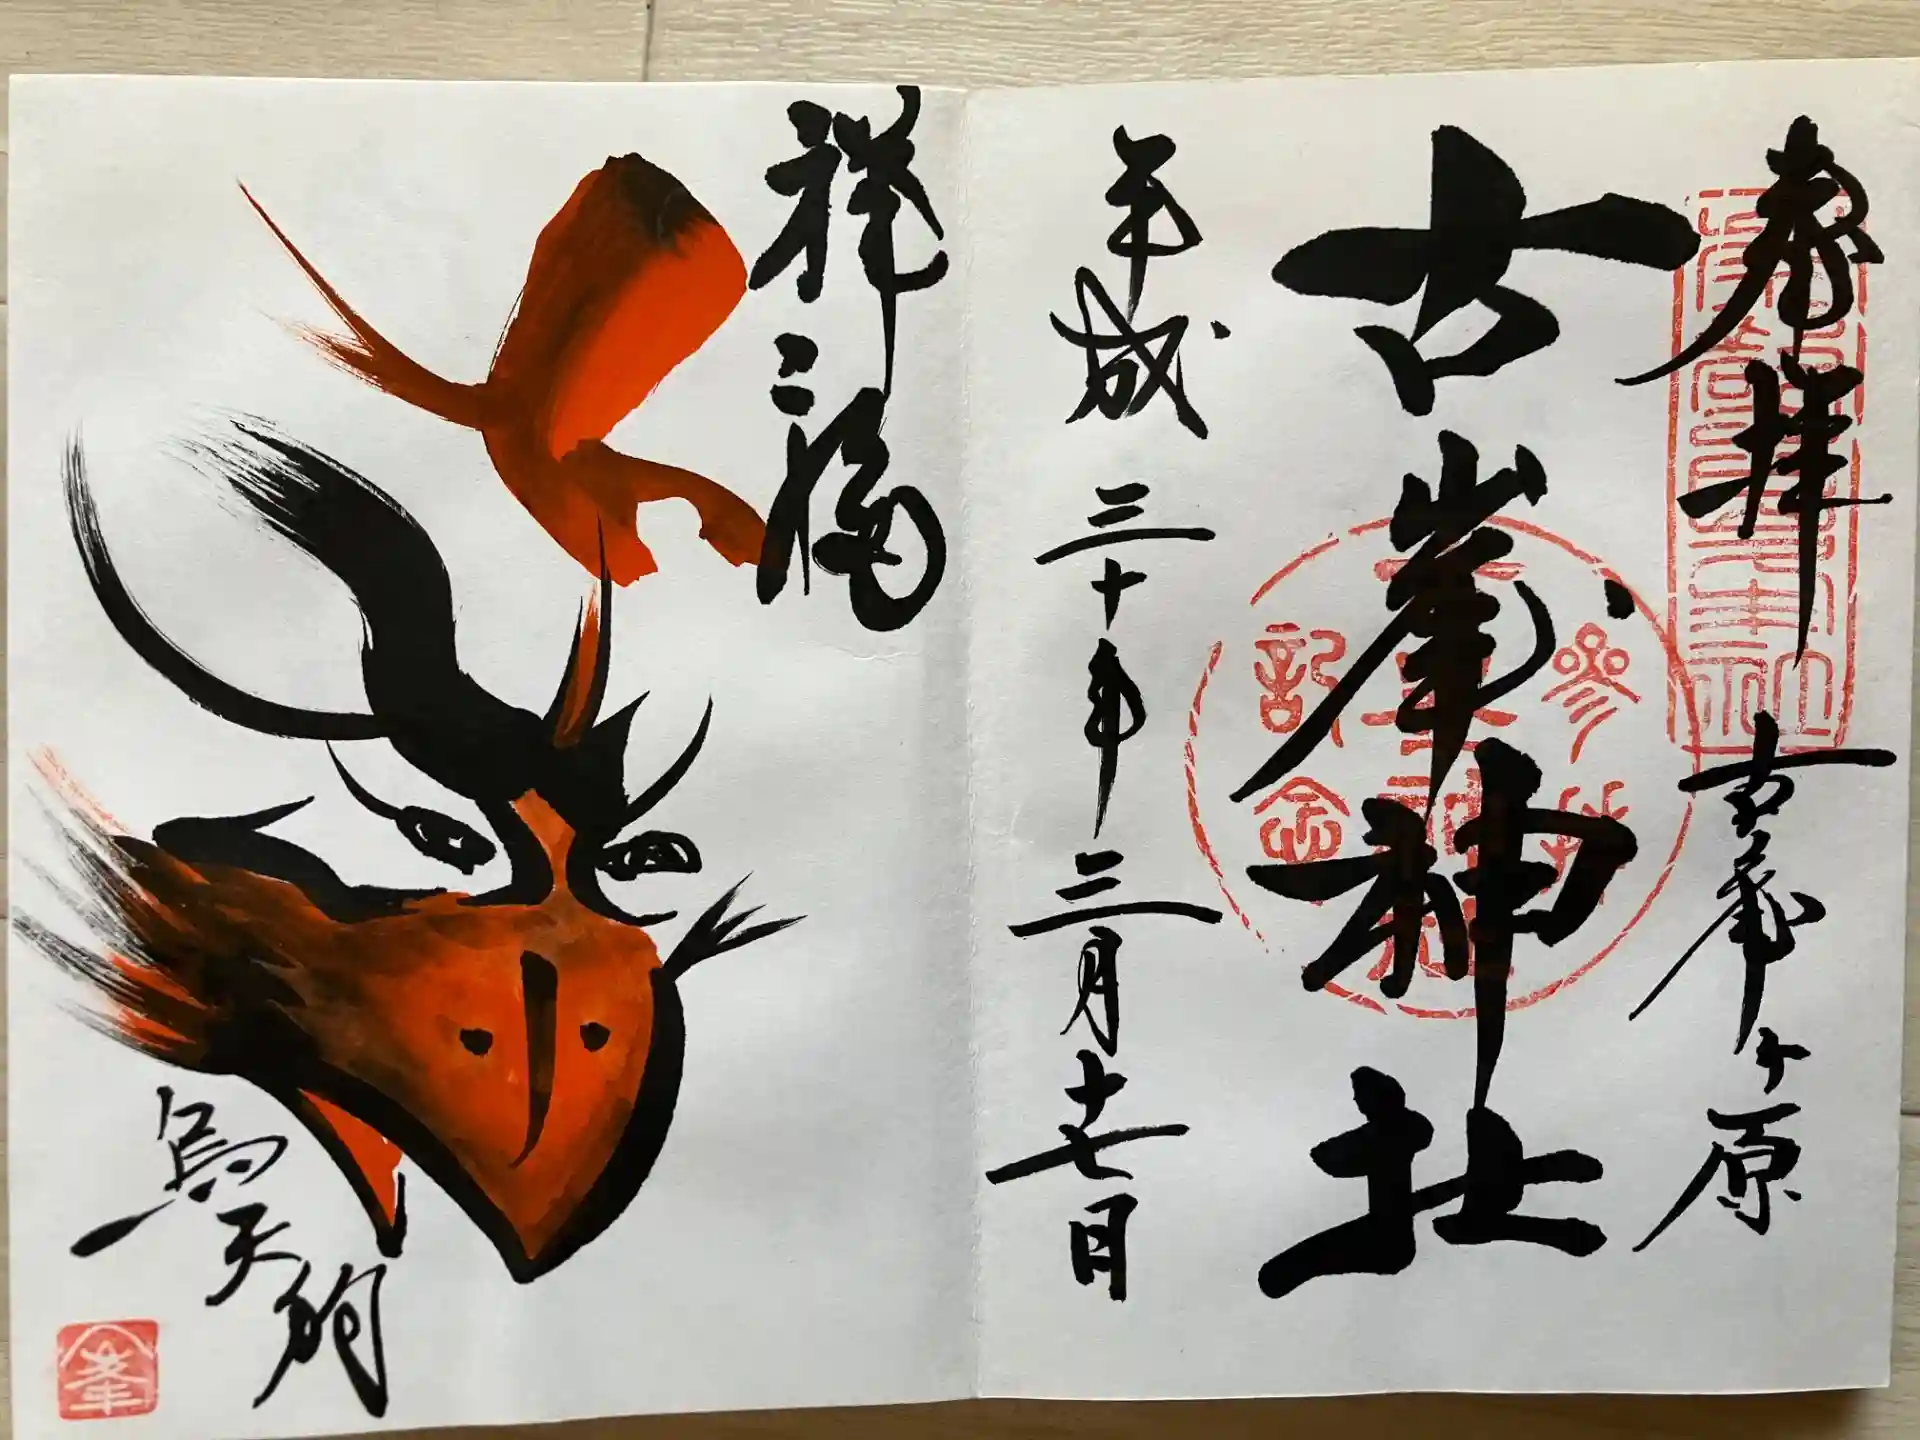 奉拝
古峯ヶ原
古峯神社
平成三十年三月十七日
祥福
烏天狗
峯